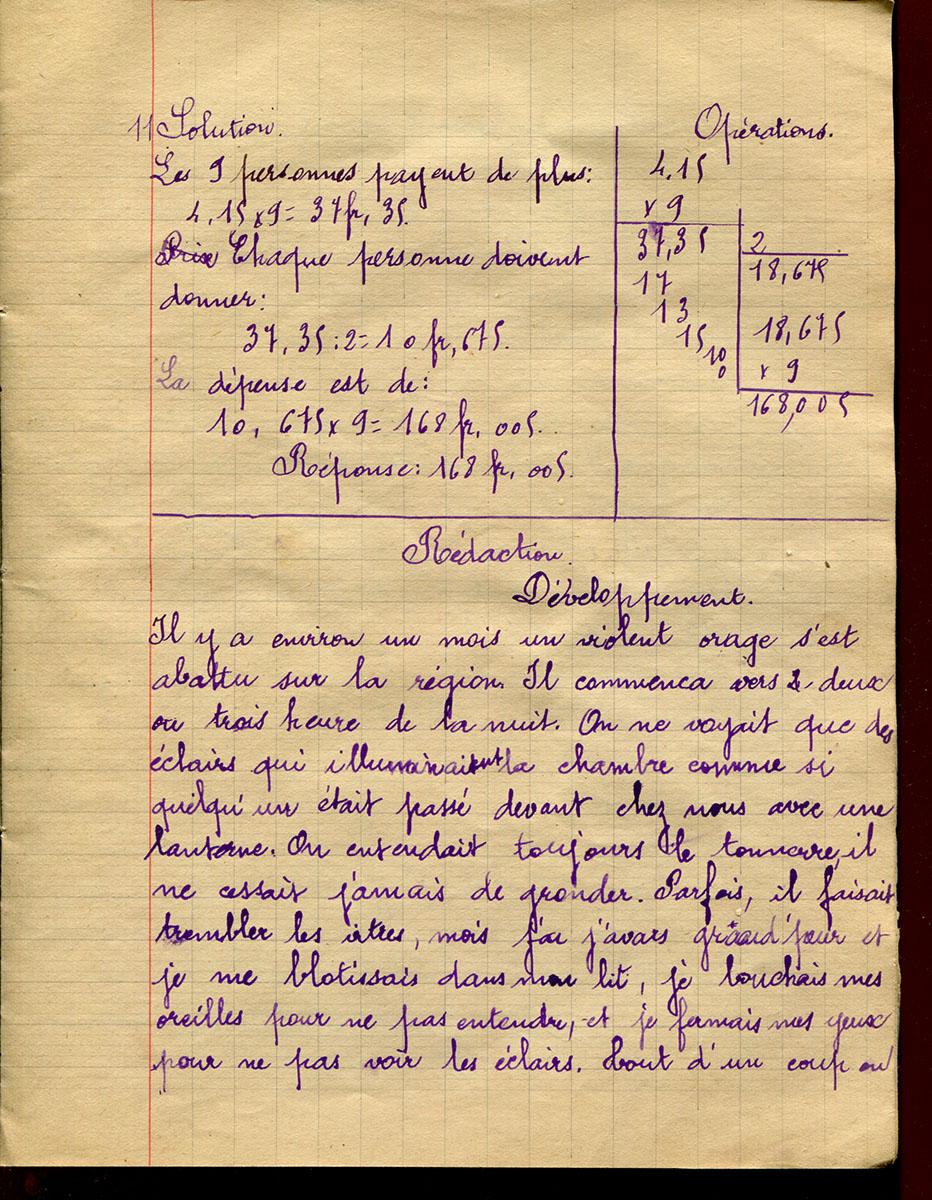 11 Solution.
Les 9 personnes payent de plus:
4,15 x 9 = 37 fr, 35.
Prix Chaque personne doivent
donner:
37, 35 : 2 = 10 fr, 675.
La dépense est de:
10, 675 x 9 = 168 fr, 005.
Réponse: 168 fr, 005.
Opérations.
4,15
x 9
37,35
17
13
15
10
0
2
18,675
18,675
x 9
168,005
Rédaction.
Développement.
Il y a environ un mois un violent orage s'est
abattu sur la région. Il commenca vers 2 deux
ou trois heure de la nuit. On ne voyait que des
éclairs qui illuminaient la chambre comme si
quelqu'un était passé devant chez nous avec une
lanterne. On entendait toujours le tonnerre, il
ne cessait jamais de gronder. Parfois, il faisait
trembler les vitres, mois j'ai j'avais grand'peur et
je me blotissais dans mon lit, je bouchais mes
oreilles pour ne pas entendre, et je fermais mes yeux
pour ne pas voir les éclairs. Tout d'un coup on